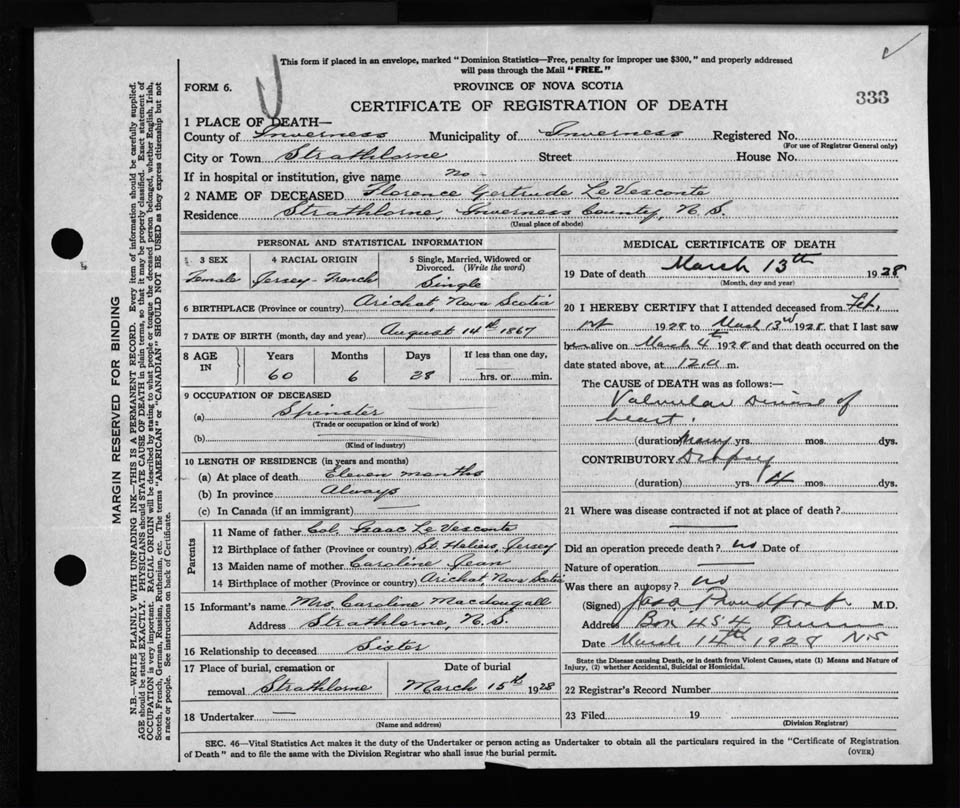 This form if placed in an envelope, marked "Dominion Statistics—Free, penalty for improper use $300," and properly addressed
will pass through the Mail "FREE."
FORM 6.
PROVINCE OF NOVA SCOTIA
CERTIFICATE OF REGISTRATION OF DEATH
333
1 PLACE OF DEATH—
County of Inverness Municipality of Inverness Registered No.
(For use of Registrar General only)
City or Town Strathlorne Street House No.
If in hospital or institution, give name No -
2 NAME OF DECEASED Florence Gertrude LeVesconte
Residence Strathlorne, Inverness County, N.S.
(Usual place of abode)
PERSONAL AND STATISTICAL INFORMATION
3 SEX 4 RACIAL ORIGIN 5 Single, Married, Widowed or Divorced. (Write the word)
Female Jersey-French Single
6 BIRTHPLACE (Province or country) Arichat, Nova Scotia
7 DATE OF BIRTH (month, day and year) August 14th 1867
8 AGE IN Years Months Days If less than one day,
60 6 28 hrs. or min.
9 OCCUPATION OF DECEASED
(a) Spinster
(Trade or occupation or kind of work)
(b)
(Kind of industry)
10 LENGTH OF RESIDENCE (in years and months)
(a) At place of death Eleven months
(b) In province Always
(c) In Canada (if an immigrant)
Parents
11 Name of father Col. Isaac LeVesconte
12 Birthplace of father (Province or country) St. Heliers, Jersey
13 Maiden name of mother Caroline Jean
14 Birthplace of mother (Province or country) Arichat, Nova Scotia
15 Informant's name Mrs. Caroline Macdougall
Address Strathlorne, N.S.
16 Relationship to deceased Sister
17 Place of burial, cremation or removal Strathlorne Date of burial March 15th 1928
18 Undertaker
(Name and address)
MEDICAL CERTIFICATE OF DEATH
19 Date of death March 13th 1928
(Month, day and year)
20 I HEREBY CERTIFY that I attended deceased from Feb.
1st 1928 to March 13rd 1928 that I last saw
her alive on March 4th 1928 and that death occurred on the
date stated above, at 12.0 m.
The CAUSE OF DEATH was as follows:—
Valvular Disease of
heart.
(duration) Many yrs. mos. dys.
CONTRIBUTORY Dropsy
(duration) yrs. 4 mos. dys.
21 Where was disease contracted if not at place of death?
Did an operation precede death? no Date of
Nature of operation
Was there an autopsy? no
(Signed) Jas A Proudfoot M.D.
Address Box 454
Date March 14th 1928 NS
State the Disease causing Death, or in death from Violent Causes, state (1) Means and Nature of
Injury, (2) whether Accidental, Suicidal or Homicidal.
22 Registrar's Record Number
23 Filed 19
(Division Registrar)
SEC. 46—Vital Statistics Act makes it the duty of the Undertaker or person acting as Undertaker to obtain all the particulars required in the "Certificate of Registration
of Death" and to file the same with the Division Registrar who shall issue the burial permit.
(OVER)
MARGIN RESERVED FOR BINDING
N.B.—WRITE PLAINLY WITH UNFADING INK—THIS IS A PERMANENT RECORD. Every item of information should be carefully supplied.
AGE should be stated EXACTLY. PHYSICIANS should STATE CAUSE OF DEATH in plain terms, so that it may be properly classified. Exact statement of
OCCUPATION is very important. RACIAL ORIGIN will be described by stating to what people or tongue the deceased person belonged, whether English, Irish,
Scotch, French, German, Russian, Ruthenian, etc. The terms "AMERICAN" or "CANADIAN" SHOULD NOT BE USED as they express citizenship but not
a race or people. See instructions on back of Certificate.